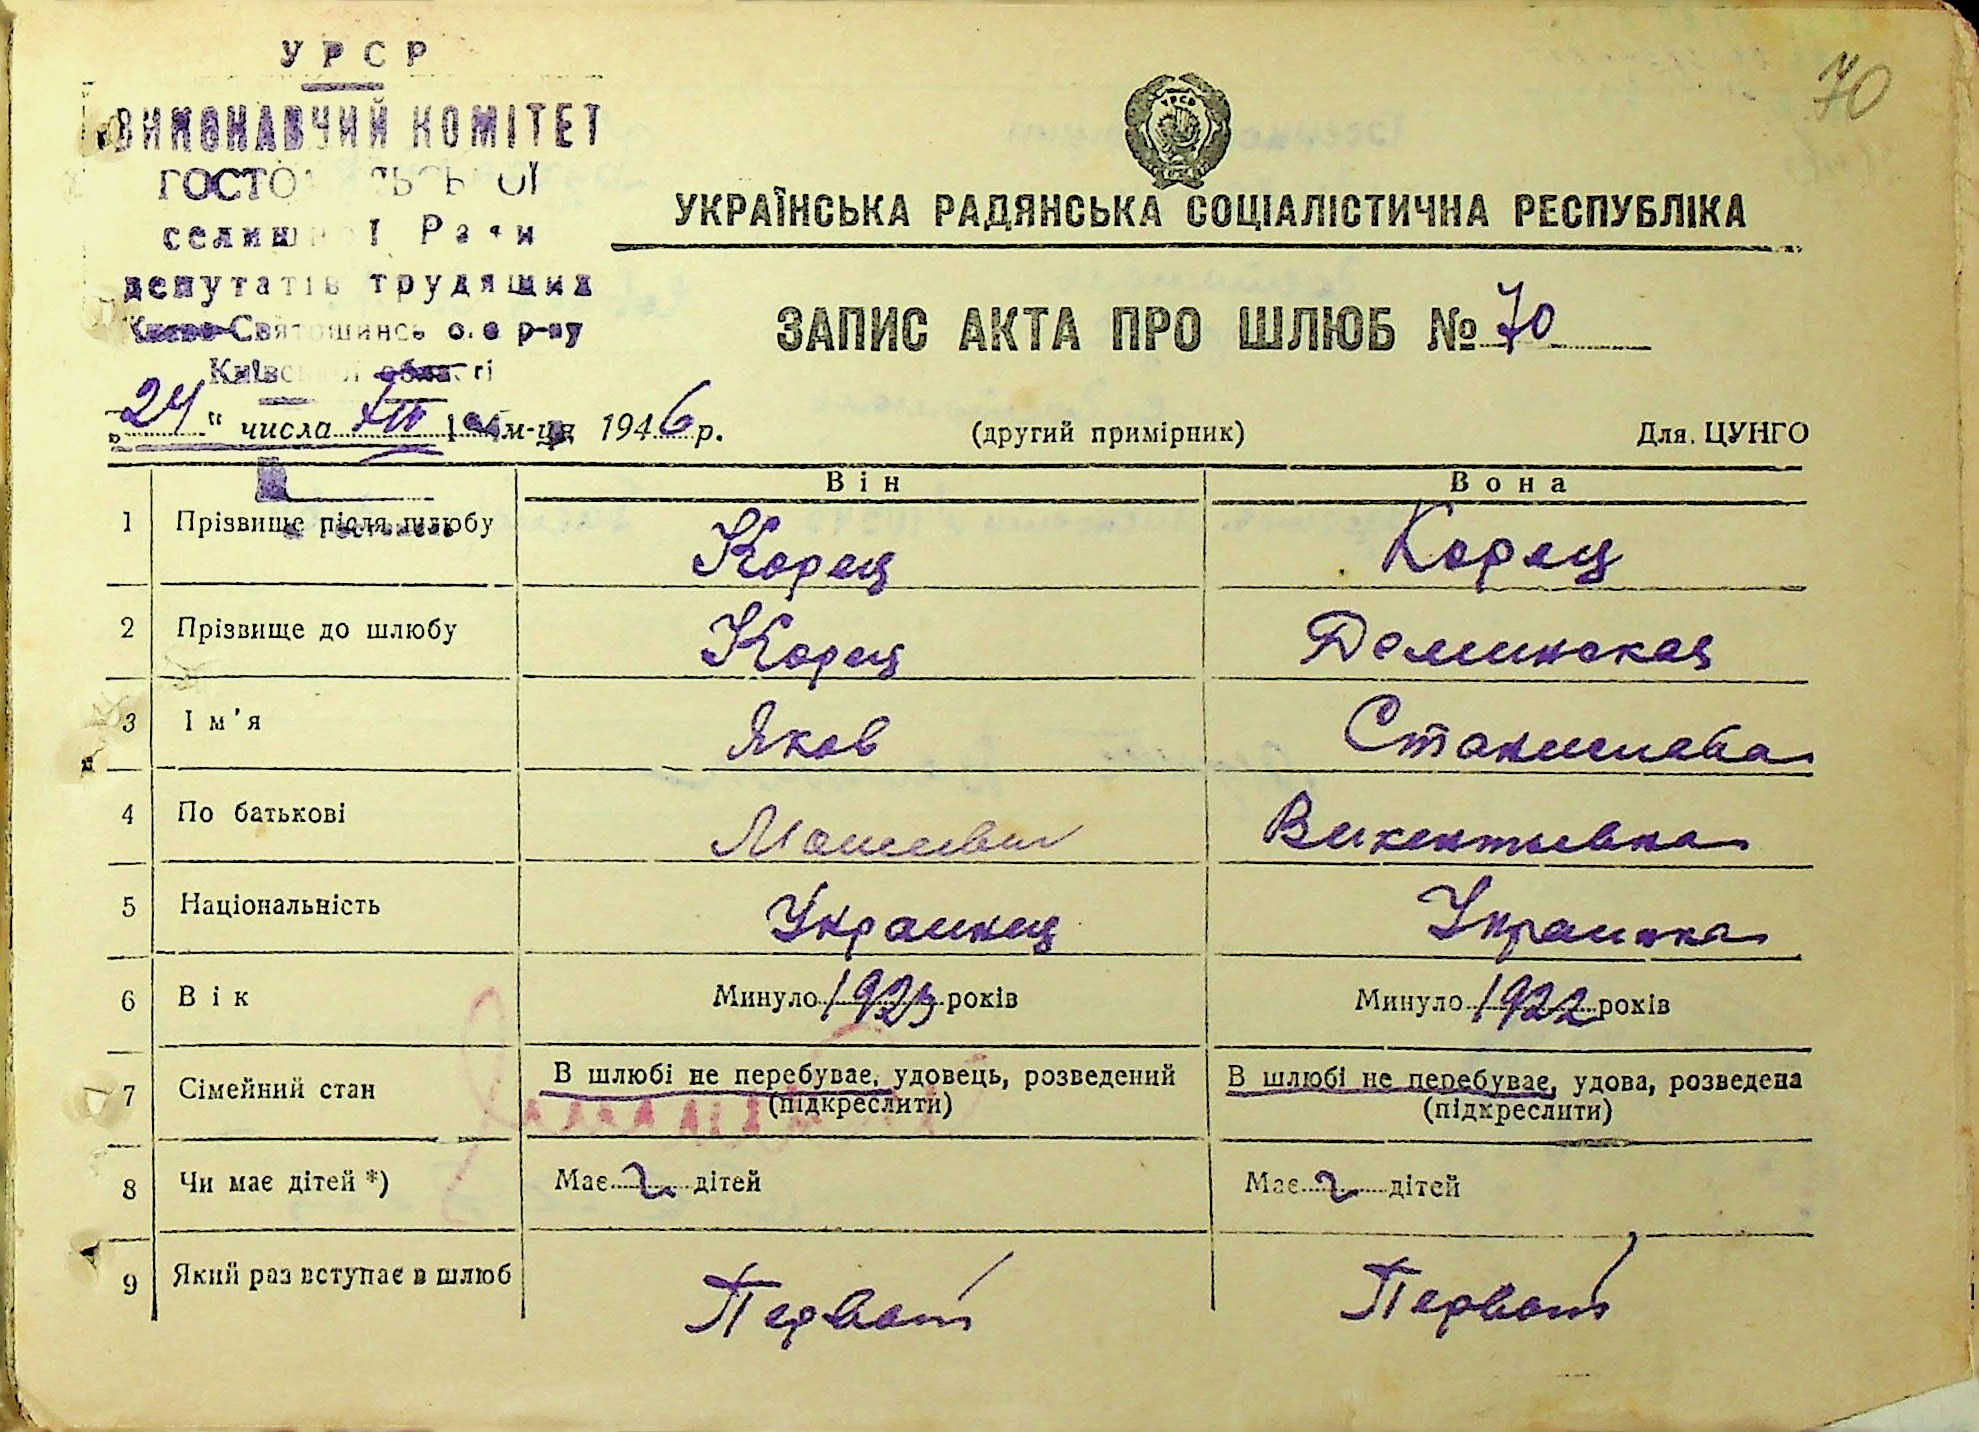 70
УРСР
ВИКОНАВЧИЙ КОМІТЕТ
селищної Ради
депутатів трудящих
Києво-Святошинського р-ну
Київської області
УРСР
УКРАЇНСЬКА РАДЯНСЬКА СОЦІАЛІСТИЧНА РЕСПУБЛІКА
ЗАПИС АКТА ПРО ШЛЮБ № 70
„24“ числа XII м-ця 1946 р.
(другий примірник)
Для ЦУНГО
Він Вона
1 Прізвище після шлюбу Корец Корец
2 Прізвище до шлюбу Корец Доминская
3 Ім'я Яков Станислава
4 По батькові Моисеевич Викентьевна
5 Національність Украинец Украинка
6 Вік Минуло 1923 років Минуло 1922 років
7 Сімейний стан В шлюбі не перебуває, удовець, розведений В шлюбі не перебуває, удова, розведена
(підкреслити) (підкреслити)
8 Чи має дітей *) Має 2 дітей Має 2 дітей
9 Який раз вступає в шлюб Первый Первый